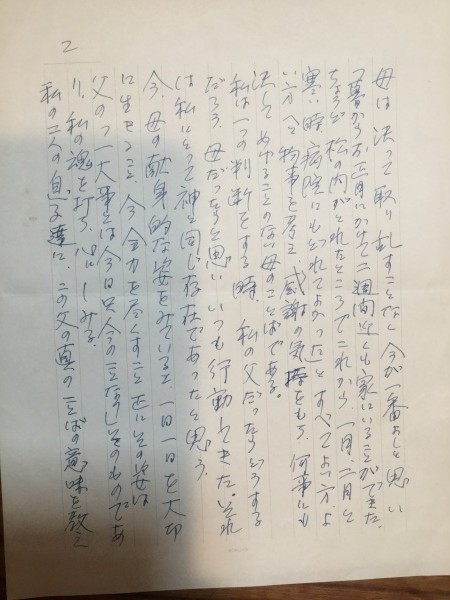 2
母は決って取り乱すことなく今が一番よしと思い
「暮からお正月にかけて二週間近くも家にいることができた。
ちょうど松の内がとれたところでこれから、一月、二月と
寒い時病院にもどれてよかった」とすべてよい方、よ
い方へと物事を考え、感謝の気持をもち、何事にも
決してめげることのない母のことばである。
私は一つの判断をする時、私の父だったらどうする
だろう、母だったらと思い、いつも行動してきた。それ
は私にとって神と同じ存在であったと思う。
今、母の献身的な姿をみていると、一日一日を大切
に生きること、今、全力を尽くすこと正にその姿は
父の「一大事とは今日只今のことなり」そのものであ
り、私の魂を打ち、心にしみる。
私の二人の息子達に、この父の真のことばの意味を教え